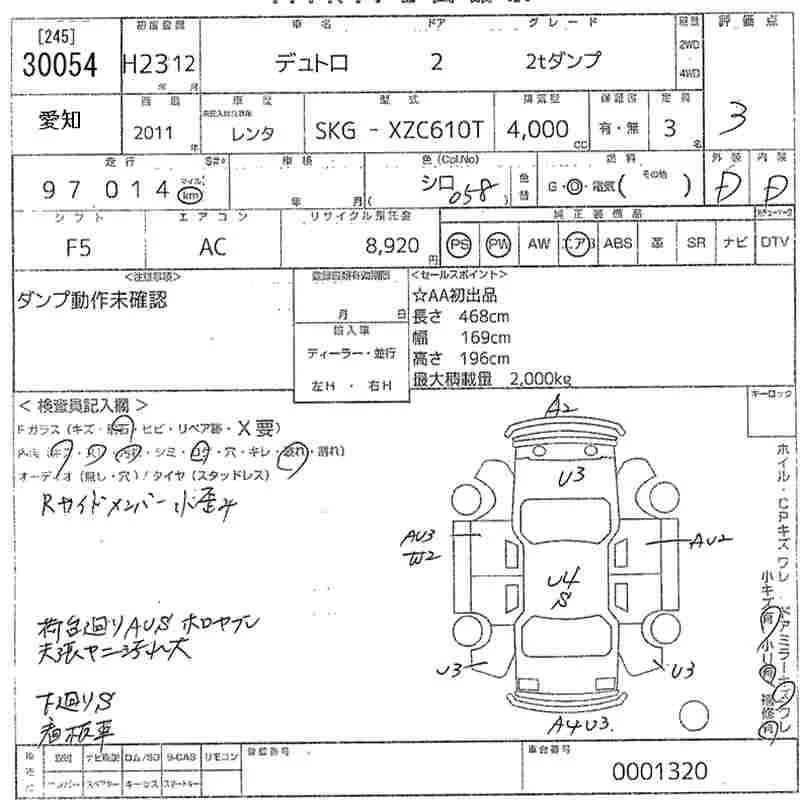 [245]
30054
初度登録
H23 12
年 月
車名
デュトロ
ドア
2
グレード
2tダンプ
2WD
4WD
評価点
3
愛知
2011
年
車歴
レンタ
型式
SKG - XZC610T
排気量
4,000
CC
保証書
有・無
定員
3
名
走行
97014
マイル
km
車検
年 月
色(Col,No)
シロ
058
色替
燃料
G・O・電気( その他 )
外装
D
内装
D
シフト
F5
エアコン
AC
リサイクル預託金
8,920
円
純正装備品
PS PW AW エアB ABS 革 SR ナビ DTV
<注意事項>
ダンプ動作未確認
登録書類有効期限
月 日
輸入車
ディーラー・並行
左H ・ 右H
<セールスポイント>
☆AA初出品
長さ 468cm
幅 169cm
高さ 196cm
最大積載量 2,000kg
キーロック
<検査員記入欄>
Fガラス(キズ・飛石・ヒビ・リペア跡・X要)
オーディオ(無し・穴)/タイヤ(スタッドレス)
Rサイドメンバー小歪み
荷台廻りAUS ホロヤブレ
天張ヤニ汚れ大
下廻りS
看板車
A2
U3
AU3
W2
AU2
U4
S
U3
U3
A4U3.
ホイル・CPキズワレ ドアミラーキズワレ
小キズ有 小U有 補修有
取説 ナビ取説 ロム/SD B-CAS リモコン
スペアキー キーレス スマートキー
登録番号
車台番号
0001320